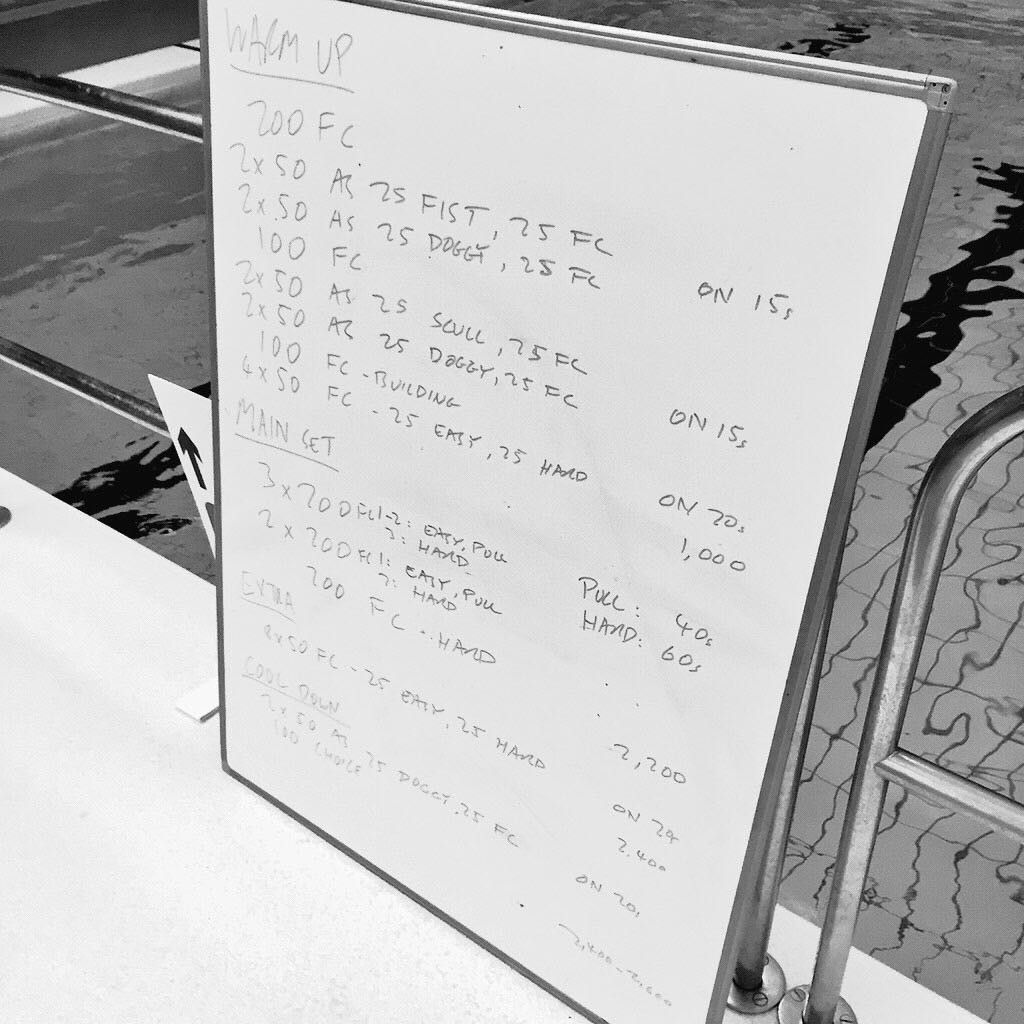 WARM UP
200 FC
2x50 AS 25 FIST, 25 FC
2x50 AS 25 DOGGY, 25 FC ON 15s
100 FC
2x50 AS 25 SCULL, 25 FC
2x50 AS 25 DOGGY, 25 FC ON 15s
100 FC - BUILDING
4x50 FC - 25 EASY, 25 HARD ON 20s
1,000
MAIN SET
3x200 FC 1-2: EASY, PULL PULL: 40s
3: HARD HARD: 60s
2x200 FC 1: EASY, PULL
2: HARD
200 FC - HARD
2,200
EXTRA
8x50 FC - 25 EASY, 25 HARD ON 20
2,400
COOL DOWN
2x50 AS 25 DOGGY, 25 FC ON 20s
100 CHOICE
2,400-2,600